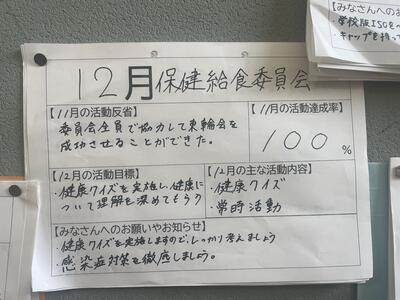 12月保健給食委員会
【11月の活動反省】
委員会全員で協力して東輪会を
成功させることができた。
【11月の活動達成率】
100%
【12月の活動目標】
・健康クイズを実施し、健康に
ついて理解を深めてもらう
【12月の主な活動内容】
・健康クイズ
・常時活動
【みなさんへのお願いやお知らせ】
・健康クイズを実施しますので、しっかり考えましょう
・感染症対策を徹底しましょう。
【みなさんへのお
・学校版ISOを
・キャップを持っ